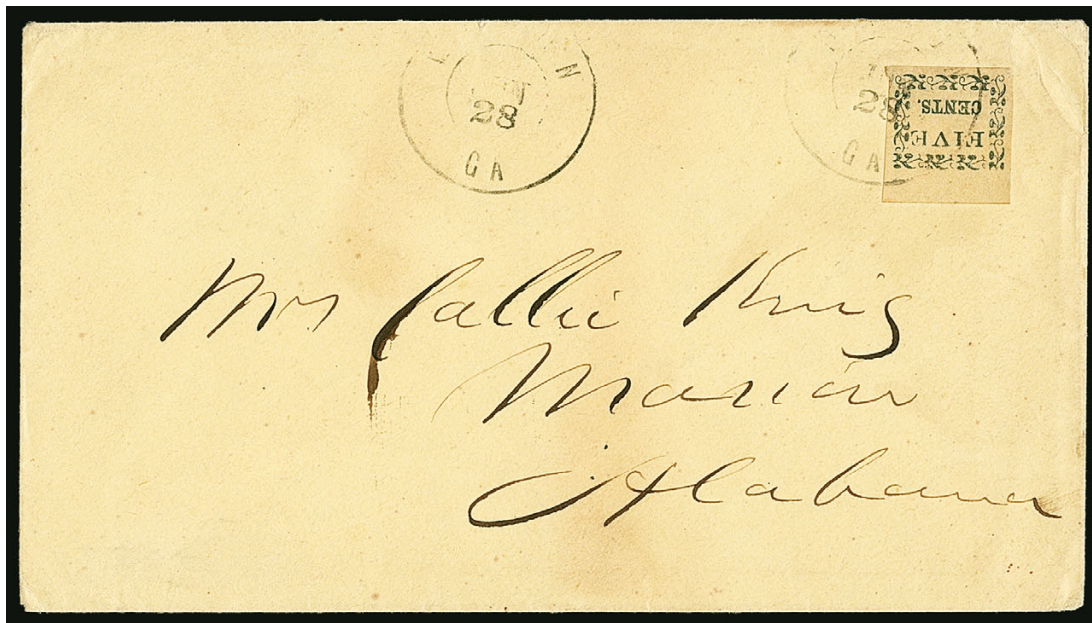 JUN
28
GA
28
GA
FIVE
CENTS.
Mrs Callie King
Marion
Alabama